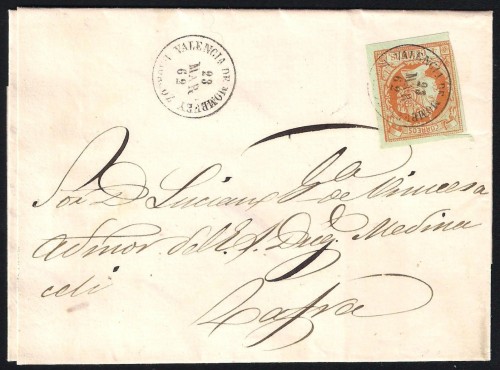 VALENCIA DE MOMBUEY
23
MAR
62
Sor D Luciano Gª de Vinuesa
Admor. del E. S. Duq. Medina
celi
Zafra